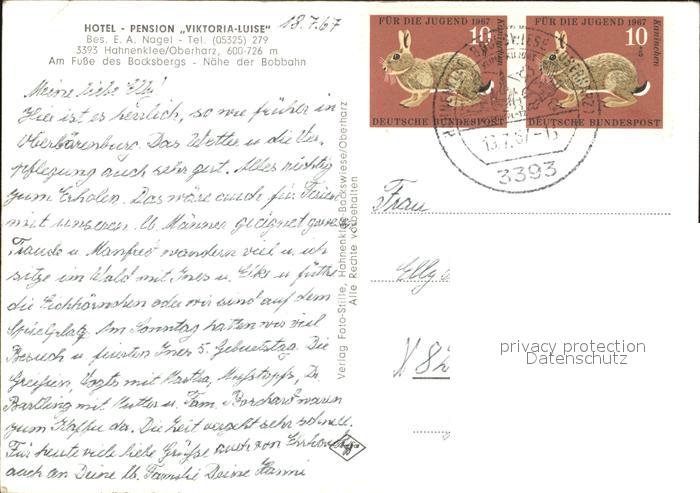 HOTEL - PENSION „VIKTORIA-LUISE"
Bes. E. A. Nagel - Tel. (05325) 279
3393 Hahnenklee/Oberharz, 600-726 m
Am Fuße des Bocksbergs - Nähe der Bobbahn
13.7.67
Meine liebe Elly!
Hier ist es herrlich, so wie früher in
Oberbärenburg. Das Wetter u. die Ver-
pflegung auch sehr gut. Alles richtig
zum Erholen. Das wäre auch für Ferien
mit unseren lb. Männer geeignet gewes.
Traude u. Manfred wandern viel u. ich
sitze im Wald mit Ines u. Eike u. füttre
die Eichhörnchen oder wir sind auf dem
Spielplatz. Am Sonntag hatten wir viel
Besuch u. feierten Ines 5. Geburtstag. Die
mit Dr.
Bartling mit Mutter u. Fam. Borchard waren
zum Kaffee da. Die Zeit vergeht sehr schnell.
Für heute viele liebe Grüße auch von
auch an Deine lb. Familie Deine Hanni
Verlag Foto-Stille, Hahnenklee Bockswiese/Oberharz
Alle Rechte vorbehalten
FÜR DIE JUGEND 1967
10
+5
Kaninchen
DEUTSCHE BUNDESPOST
FÜR DIE JUGEND 1967
10
+5
Kaninchen
DEUTSCHE BUNDESPOST
3393
Frau
Elly
X 82
privacy protection
Datenschutz